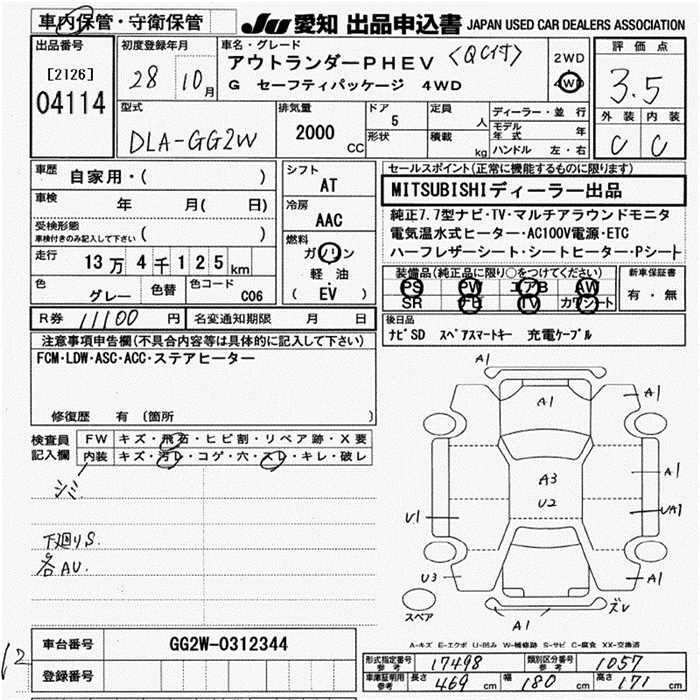 車内保管・守衛保管
JU 愛知 出品申込書 JAPAN USED CAR DEALERS ASSOCIATION
出品番号
[2126]
04114
初度登録年月
28 10月
車名・グレード
アウトランダーPHEV 〈QC付〉
G セーフティパッケージ 4WD
2WD
4WD
評価点
3.5
外装 内装
C C
型式
DLA-GG2W
排気量
2000 CC
ドア
5
形状
定員
人
積載
kg
ディーラー・並行
モデル年式 年
ハンドル 左・右
車歴
自家用・( )
車検 年 月( 日)
受検形態
車検付きのみ記入して下さい ( )
走行 13万4千125km
色 グレー
色替
色コード C06
シフト
AT
冷房
AAC
燃料
ガソリン
軽油
( EV )
セールスポイント(正常に機能するものに限ります)
MITSUBISHIディーラー出品
純正7.7型ナビ・TV・マルチアラウンドモニタ
電気温水式ヒーター・AC100V電源・ETC
ハーフレザーシート・シートヒーター・Pシート
装備品(純正品に限り○をつけてください)
PS PW エアB AW
SR ナビ TV カワシート
新車保証書
有・無
R券 11100 円 名変通知期限 月 日
後日品
ナビSD スペアスマートキー 充電ケーブル
注意事項申告欄(不具合内容等は具体的に記入して下さい)
FCM・LDW・ASC・ACC・ステアヒーター
修復歴 有 (箇所 )
検査員記入欄
FW キズ・飛石・ヒビ割・リペア跡・X要
内装 キズ・汚レ・コゲ・穴・スレ・キレ・破レ
シミ
下廻りS.
各AU.
A1
A1
A1
A1
A3
U2
U1
UA1
U3
A1
A1
ズレ
スペア
A-キズ E-エクボ U-凹み W-補修跡 S-サビ C-腐食 XX-交換済
車台番号 GG2W-0312344
登録番号
12
形式指定番号参考 17498 類別区分番号参考 1057
車庫証明用参考 長さ 469 cm 幅 180 cm 高さ 171 cm